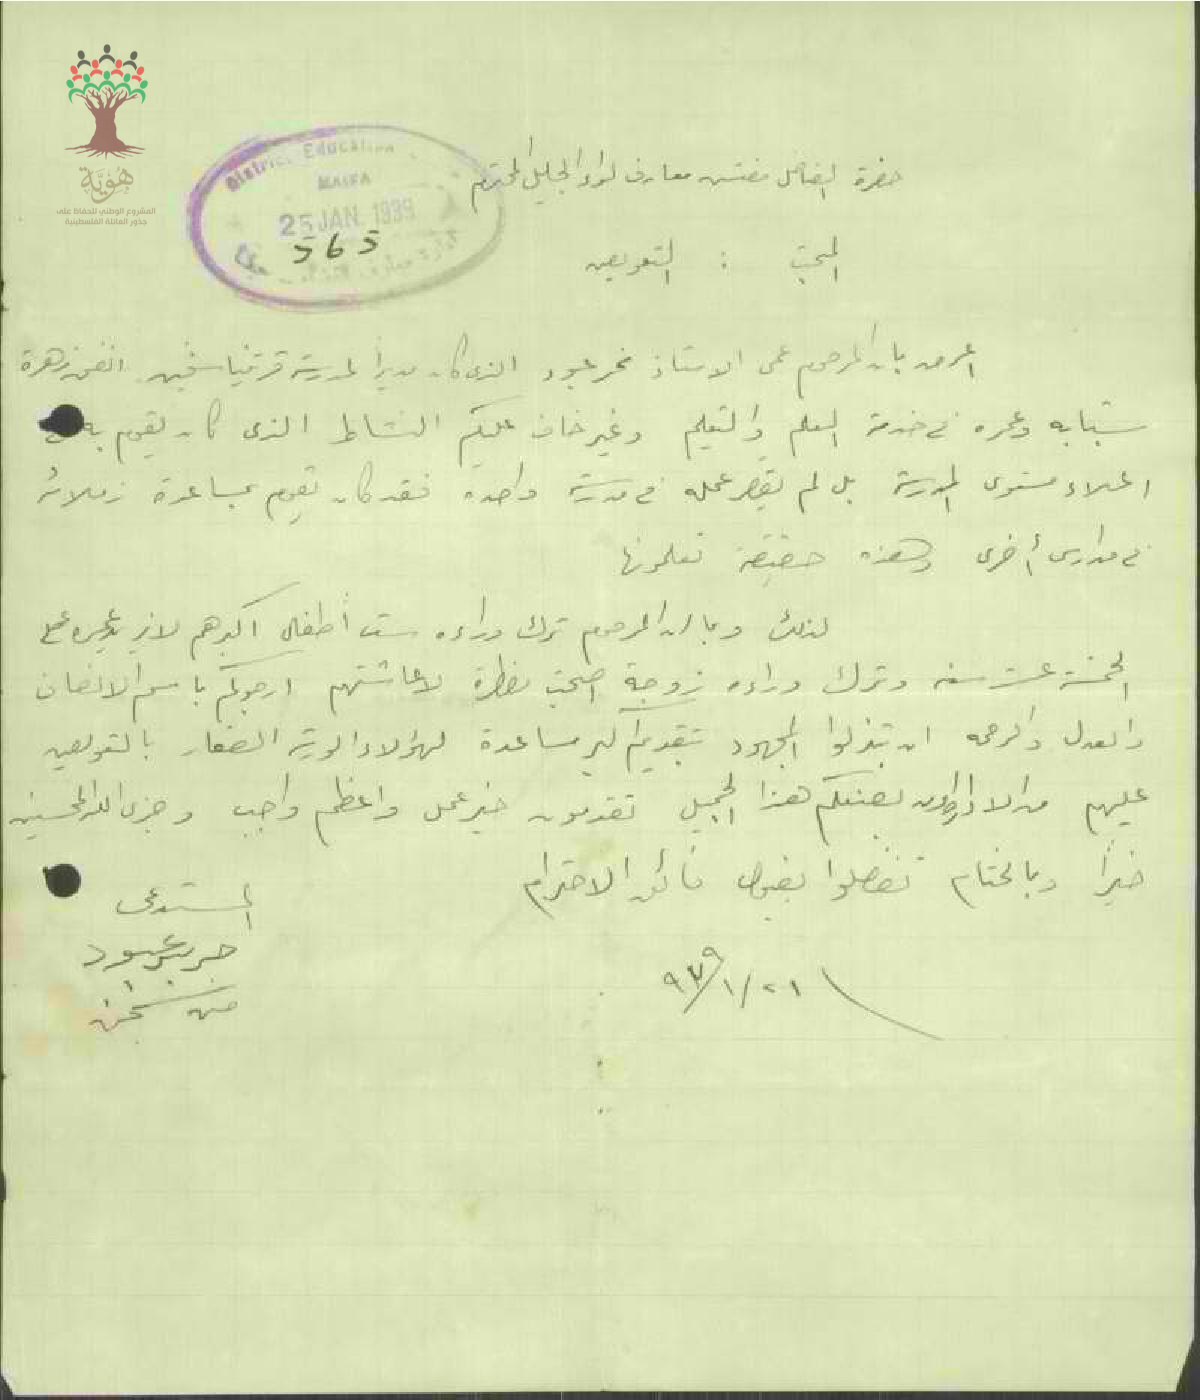 هوية
المشروع الوطني للحفاظ على
جذور العائلة الفلسطينية
District Education
HAIFA
25 JAN. 1939
565
حضرة الفاضل مفتش معارف لواء الجليل المحترم
المبحث : التعويض
اعرض بان المرحوم عمي الاستاذ نمر عبود الذي كان مديراً لمدرسة قرقفين انفق زهرة
شبابه وعمره في خدمة العلم والتعليم وغير خاف عليكم النشاط الذي كان يقوم به في
اعلاء مستوى المدرسة بل لم يقصر عمله في مدرسة واحده فقد كان يقوم بمساعدة زملائه
في مدارس أخرى وهذه حقيقة تعلمونها
لذلك وبما ان المرحوم ترك وراءه ست أطفال اكبرهم لا يزيد عمره على
الخمسة عشر سنه وترك وراءه زوجة اصبحت مضطرة لاعاشتهم ارجوكم باسم الانصاف
والعدل والرحمه ان تبذلوا المجهود بتقديم اكبر مساعدة لهؤلاء الورثة الصغار بالتعويض
عليهم من الادارة بصنعكم هذا الجميل تقدمون خير عمل واعظم واجب وجزى الله المحسنين
خيراً وبالختام تفضلوا بقبول فائق الاحترام
المستدعي
عبود
من سخنين
٢١/١/٩٣٩